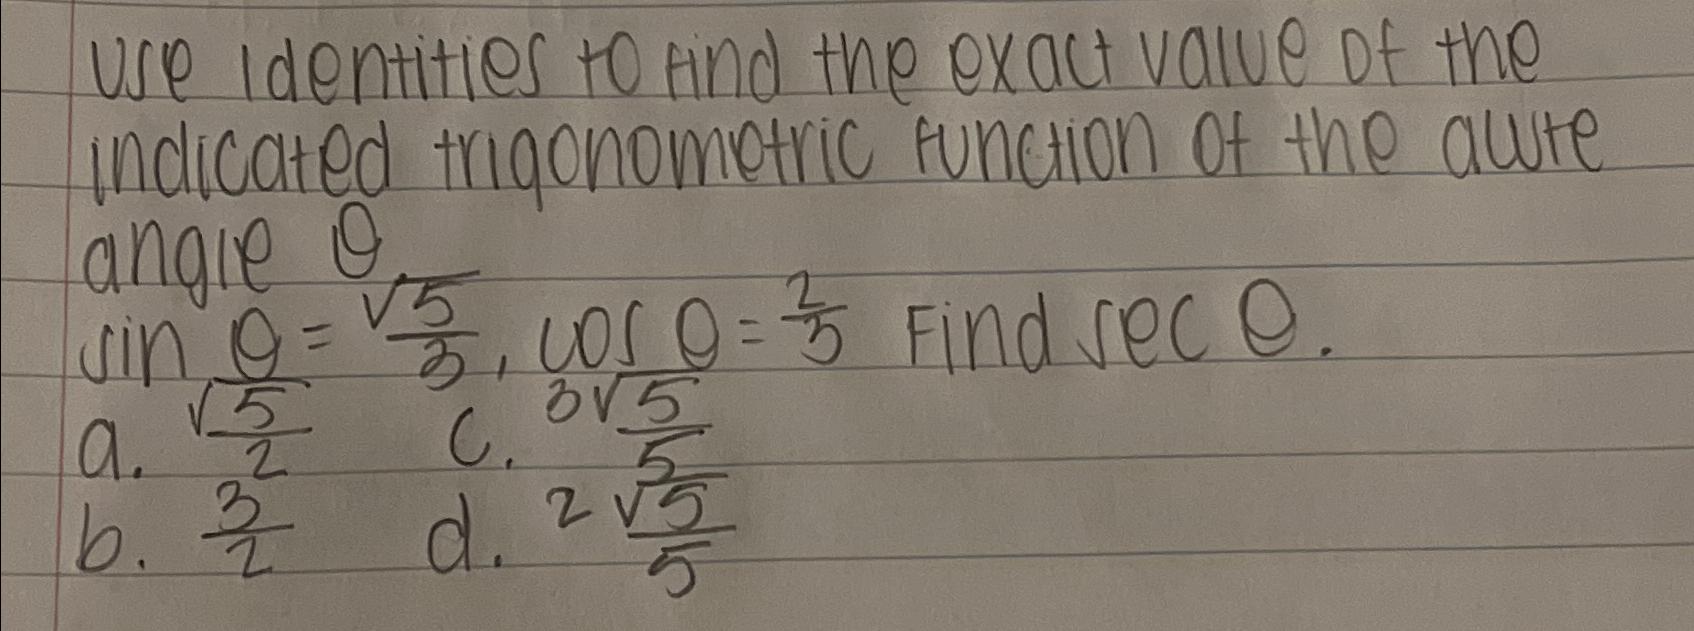 use identities to find the exact value of the
indicated trigonometric function of the acute
angle θ
sin θ = √5/3, cos θ = 2/3 Find sec θ.
a. √5/2 c. 3√5/5
b. 3/2 d. 2√5/5